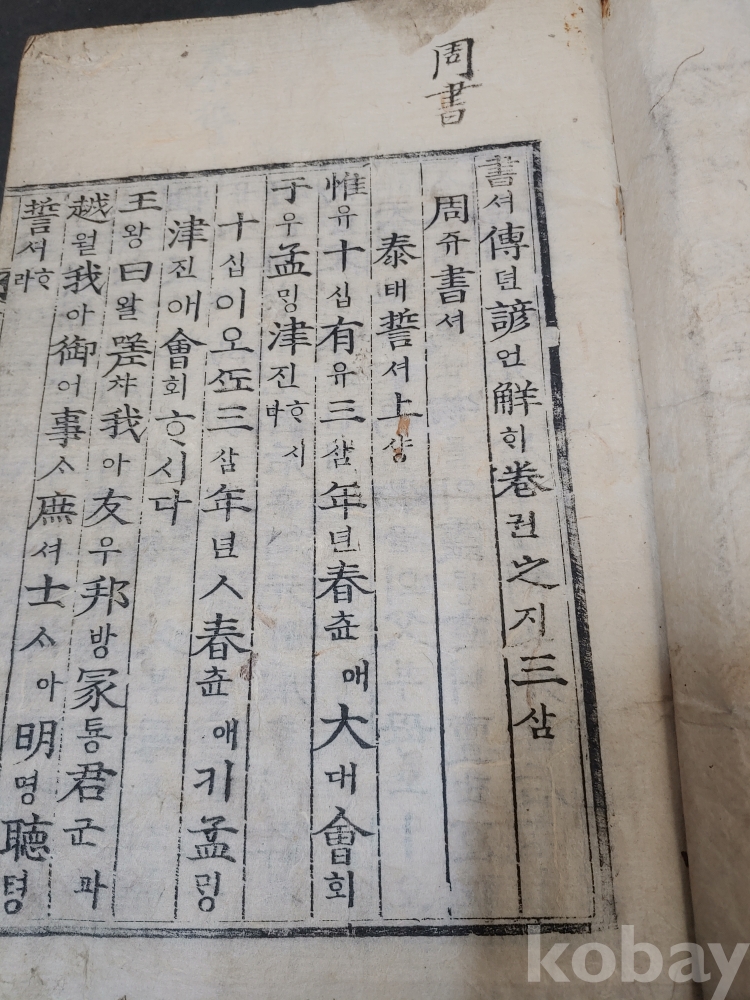 周書
書셔傳뎐諺언解ᄒᆡ卷권之지三삼
周쥬書셔
泰태誓셔上샹
惟유十십有유三삼年년春츈애大대會회
于우孟ᄆᆡᆼ津진ᄒᆞ시다
十십이오ᄯᅩ三삼年년ㅅ春츈애키孟ᄆᆡᆼ
津진애會회ᄒᆞ시다
王왕曰왈嗟챠我아友우邦방冢툥君군과
越월我아御어事ᄉᆞ庶셔士ᄉᆞ아明명聽텽
誓셔ᄒᆞ라
kobay